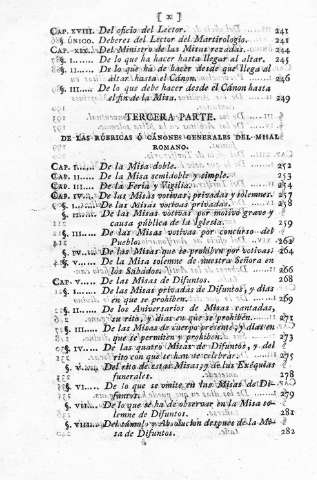 [ X ]
CAP. XVIII. Del oficio del Lector. 241
§ ÚNICO. Deberes del Lector del Martirologio. 241
CAP. XIX. Del Ministro de las Misas rezadas. 244
§. I...... De lo que ha hacer hasta llegar al altar. 245
§. II..... De lo que ha de hacer desde que llega al
altar hasta el Cánon. 246
§. III.... De lo que debe hacer desde el Cánon hasta
el fin de la Misa. 249
TERCERA PARTE.
DE LAS RÚBRICAS Ó CÁNONES GENERALES DEL MISAL
ROMANO.
CAP. I...... De la Misa doble. 252
CAP. II..... De la Misa semidoble y simple. 253
CAP. III.... De la Feria y Vigilia. 254
CAP. IV..... De las Misas votivas, privadas y solemnes. 257
§. I...... De las Misas votivas privadas. 258
§. II..... De las Misas votivas por motivo grave y
causa pública de la Iglesia. 259
§. III.... De las Misas votivas por concurso del
Pueblo. 262
§. IV..... De las Misas que se prohiben por votivas. 264
§. V...... De la Misa solemne de nuestra Señora en
los Sábados. 266
CAP. V...... De las Misas de Difuntos. 268
§. I...... De las Misas privadas de Difuntos, y dias
en que se prohiben. 269
§. II..... De los Aniversarios de Misas cantadas,
su rito, y dias en que se prohiben. 271
§. III.... De las Misas de cuerpo presente, y dias en
que se permiten y prohiben. 273
§. IV..... De las quatro Misas de Difuntos, y del
rito con que se han de celebrar. 275
§. V...... Del rito de estas Misas, y de las Exêquias
funerales. 278
§. VI..... De lo que se omite en las Misas de Di-
funtos. 279
§. VII.... De lo que se ha de observar en la Misa so-
lemne de Difuntos. 281
§. VIII... Del túmulo y Absolucion despues de la Mi-
sa de Difuntos. 282